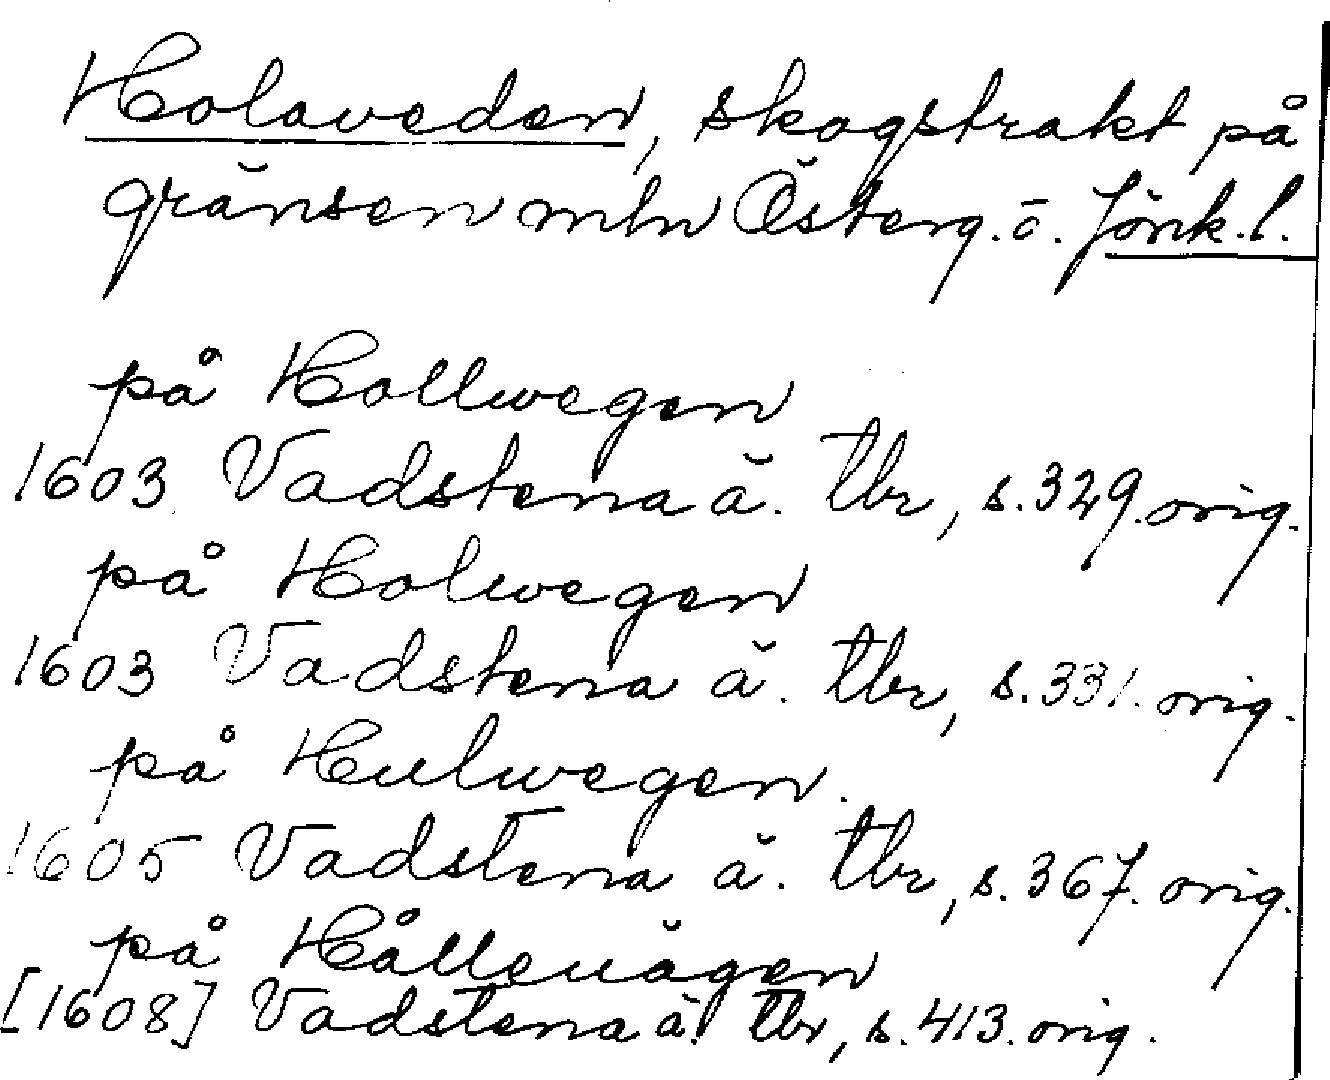 Holaveden, skogstrakt på
gränsen mln Österg. o. Jönk. l.
på Hollwegen
1603 Vadstena ä. tbr, s. 329. orig.
på Holwegen
1603 Vadstena ä. tbr, s. 331. orig.
på Hulwegen.
1605 Vadstena ä. tbr, s. 367. orig.
på Hålleuägen
[1608] Vadstena ä. tbr, s. 413. orig.